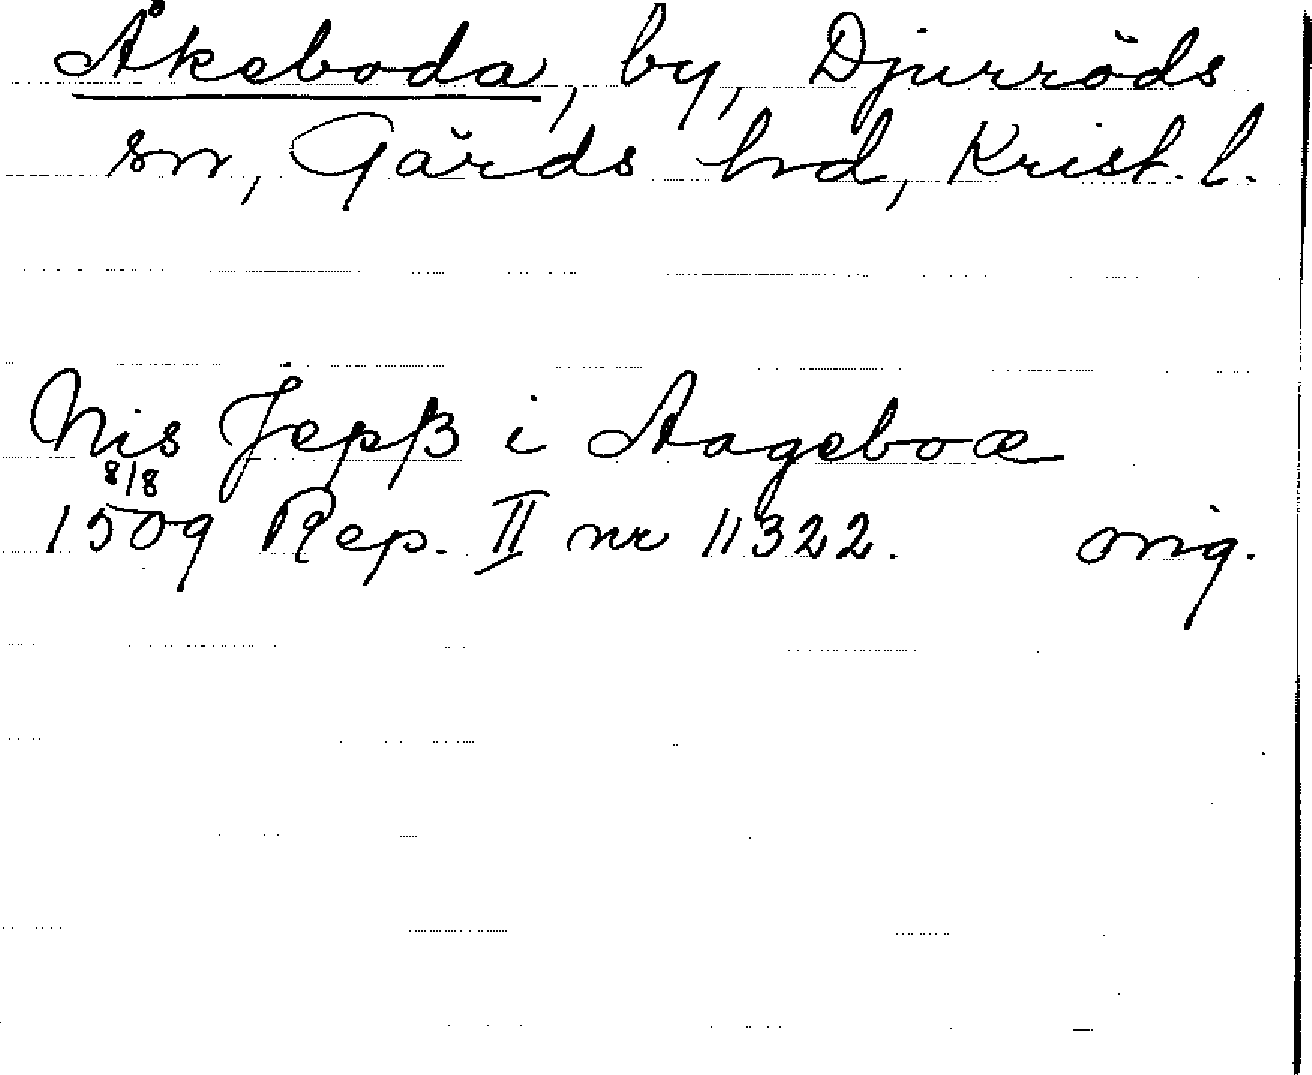 Åkeboda, by, Djurröds
sn, Gärds hrd, Krist. l.
Nis Jepß i Aageboæ
8/8
1509 Rep. II nr 11322. orig.